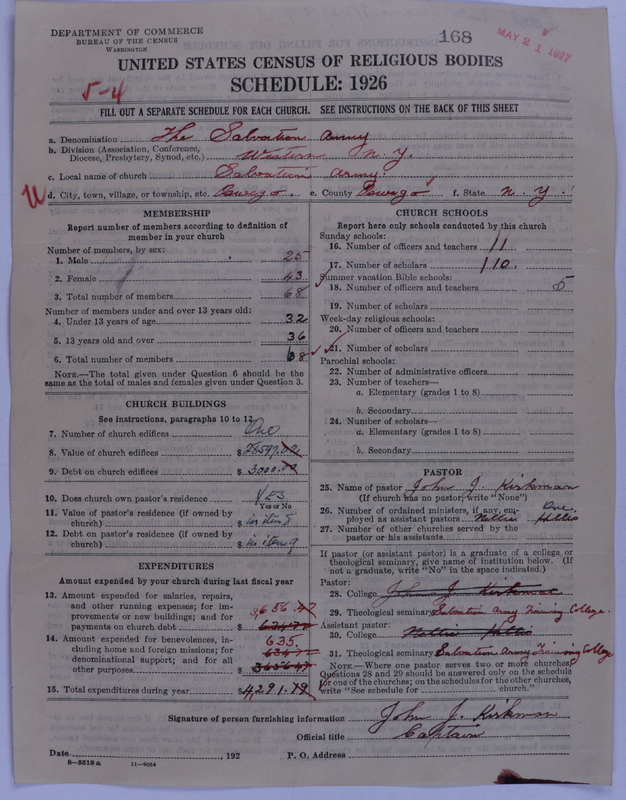 DEPARTMENT OF COMMERCE
BUREAU OF THE CENSUS
WASHINGTON
168
MAY 21 1927
UNITED STATES CENSUS OF RELIGIOUS BODIES
SCHEDULE: 1926
5-4
FILL OUT A SEPARATE SCHEDULE FOR EACH CHURCH. SEE INSTRUCTIONS ON THE BACK OF THIS SHEET
a. Denomination The Salvation Army
b. Division (Association, Conference, Diocese, Presbytery, Synod, etc.) Western N.Y.
c. Local name of church Salvation Army
d. City, town, village, or township, etc. Oswego. e. County Oswego f. State N. Y.
MEMBERSHIP
Report number of members according to definition of
member in your church
Number of members, by sex:
1. Male 25
2. Female 43
3. Total number of members 68
Number of members under and over 13 years old:
4. Under 13 years of age 32
5. 13 years old and over 36
6. Total number of members 68
NOTE.—The total given under Question 6 should be the
same as the total of males and females given under Question 3.
CHURCH BUILDINGS
See instructions, paragraphs 10 to 12
7. Number of church edifices One
8. Value of church edifices $
9. Debt on church edifices $ 3000.00
10. Does church own pastor's residence Yes
Yes or No
11. Value of pastor's residence (if owned by
church) $ in item 8
12. Debt on pastor's residence (if owned by
church) $ in item 9
EXPENDITURES
Amount expended by your church during last fiscal year
13. Amount expended for salaries, repairs,
and other running expenses; for im-
provements or new buildings; and for
payments on church debt $ 3656.47
14. Amount expended for benevolences, in-
cluding home and foreign missions; for
denominational support; and for all
other purposes $ 635.
15. Total expenditures during year $ 4,291.19
CHURCH SCHOOLS
Report here only schools conducted by this church
Sunday schools:
16. Number of officers and teachers 11
17. Number of scholars 110.
Summer vacation Bible schools:
18. Number of officers and teachers 5
19. Number of scholars
Week-day religious schools:
20. Number of officers and teachers
21. Number of scholars
Parochial schools:
22. Number of administrative officers
23. Number of teachers—
a. Elementary (grades 1 to 8)
b. Secondary
24. Number of scholars—
a. Elementary (grades 1 to 8)
b. Secondary
PASTOR
25. Name of pastor John J. Kirkman
(If church has no pastor, write "None")
26. Number of ordained ministers, if any, em- One
ployed as assistant pastors Nellie Hollis
27. Number of other churches served by the
pastor or his assistants
If pastor (or assistant pastor) is a graduate of a college or
theological seminary, give name of institution below. (If
not a graduate, write "No" in the space indicated.)
Pastor:
28. College John J. Kirkman
29. Theological seminary Salvation Army Training College.
Assistant pastor:
30. College Nellie Hollis
31. Theological seminary Salvation Army Training College
NOTE.—Where one pastor serves two or more churches,
Questions 28 and 29 should be answered only on the schedule
for one of the churches; on the schedules for the other churches,
write "See schedule for church."
Signature of person furnishing information John J. Kirkman
Official title Captain
Date , 192 P. O. Address
8-5518a 11-9054